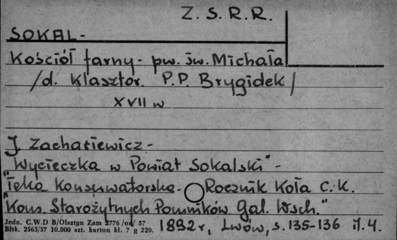 Z. S. R. R.
SOKAL-
Kościół farny - pw. św. Michała
/d. Klasztor. P.P. Brygidek/
XVII w
J Zachariewicz-
"Wycieczka w Powiat Sokalski"-
"Teka Konserwatorska - Rocznik Koła C.K.
Kons. Starożytnych Pomników Gal. Wsch."
Jedn. C.W.D B/Olsztyn Zam 2776 /od/ 57
Bltk. 2565/57 10.000 szt. karton kl. 7 g 220.
1892 r, Lwów, s. 135-136 il. 4.